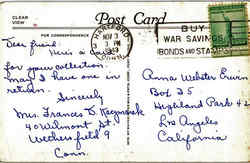 CLEAR VIEW
Post Card
FOR CORRESPONDENCE
HARTFORD
NOV 3
3 PM
1943
CONN.
BUY
WAR SAVINGS
BONDS AND STAMPS
Dear friend:
Here's a card
for your collection.
may I have one in
return.
Sincerely
Mrs. Frances D.
40 Wilmont St
Wethersfield 9
Conn.
Anna Webster
Box 25
Highland Park
Los Angeles
California